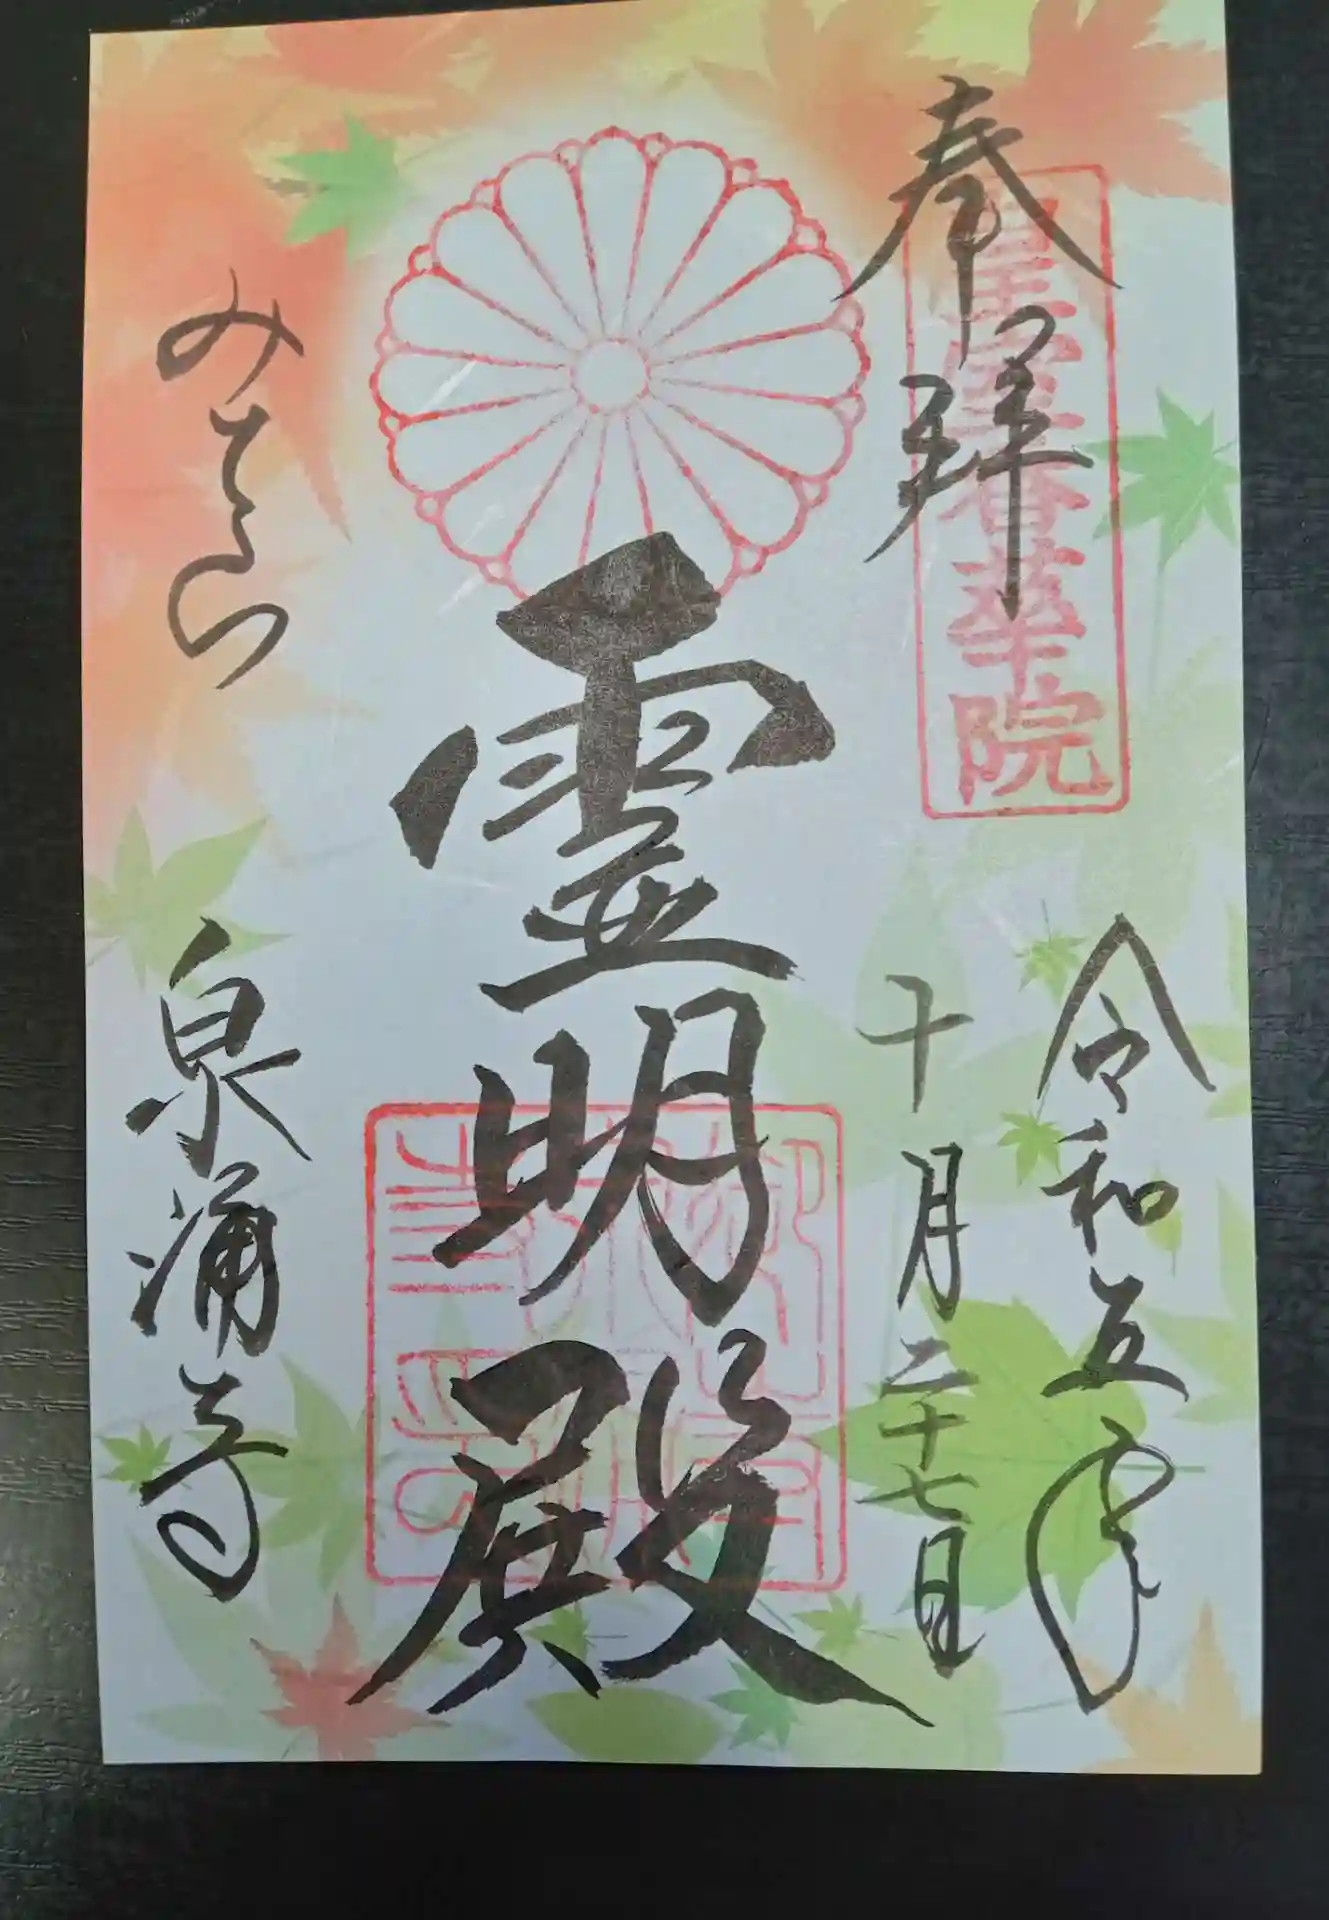 奉拝
皇室香華院
令和五年
十月二十七日
霊明殿
みてら
泉涌寺